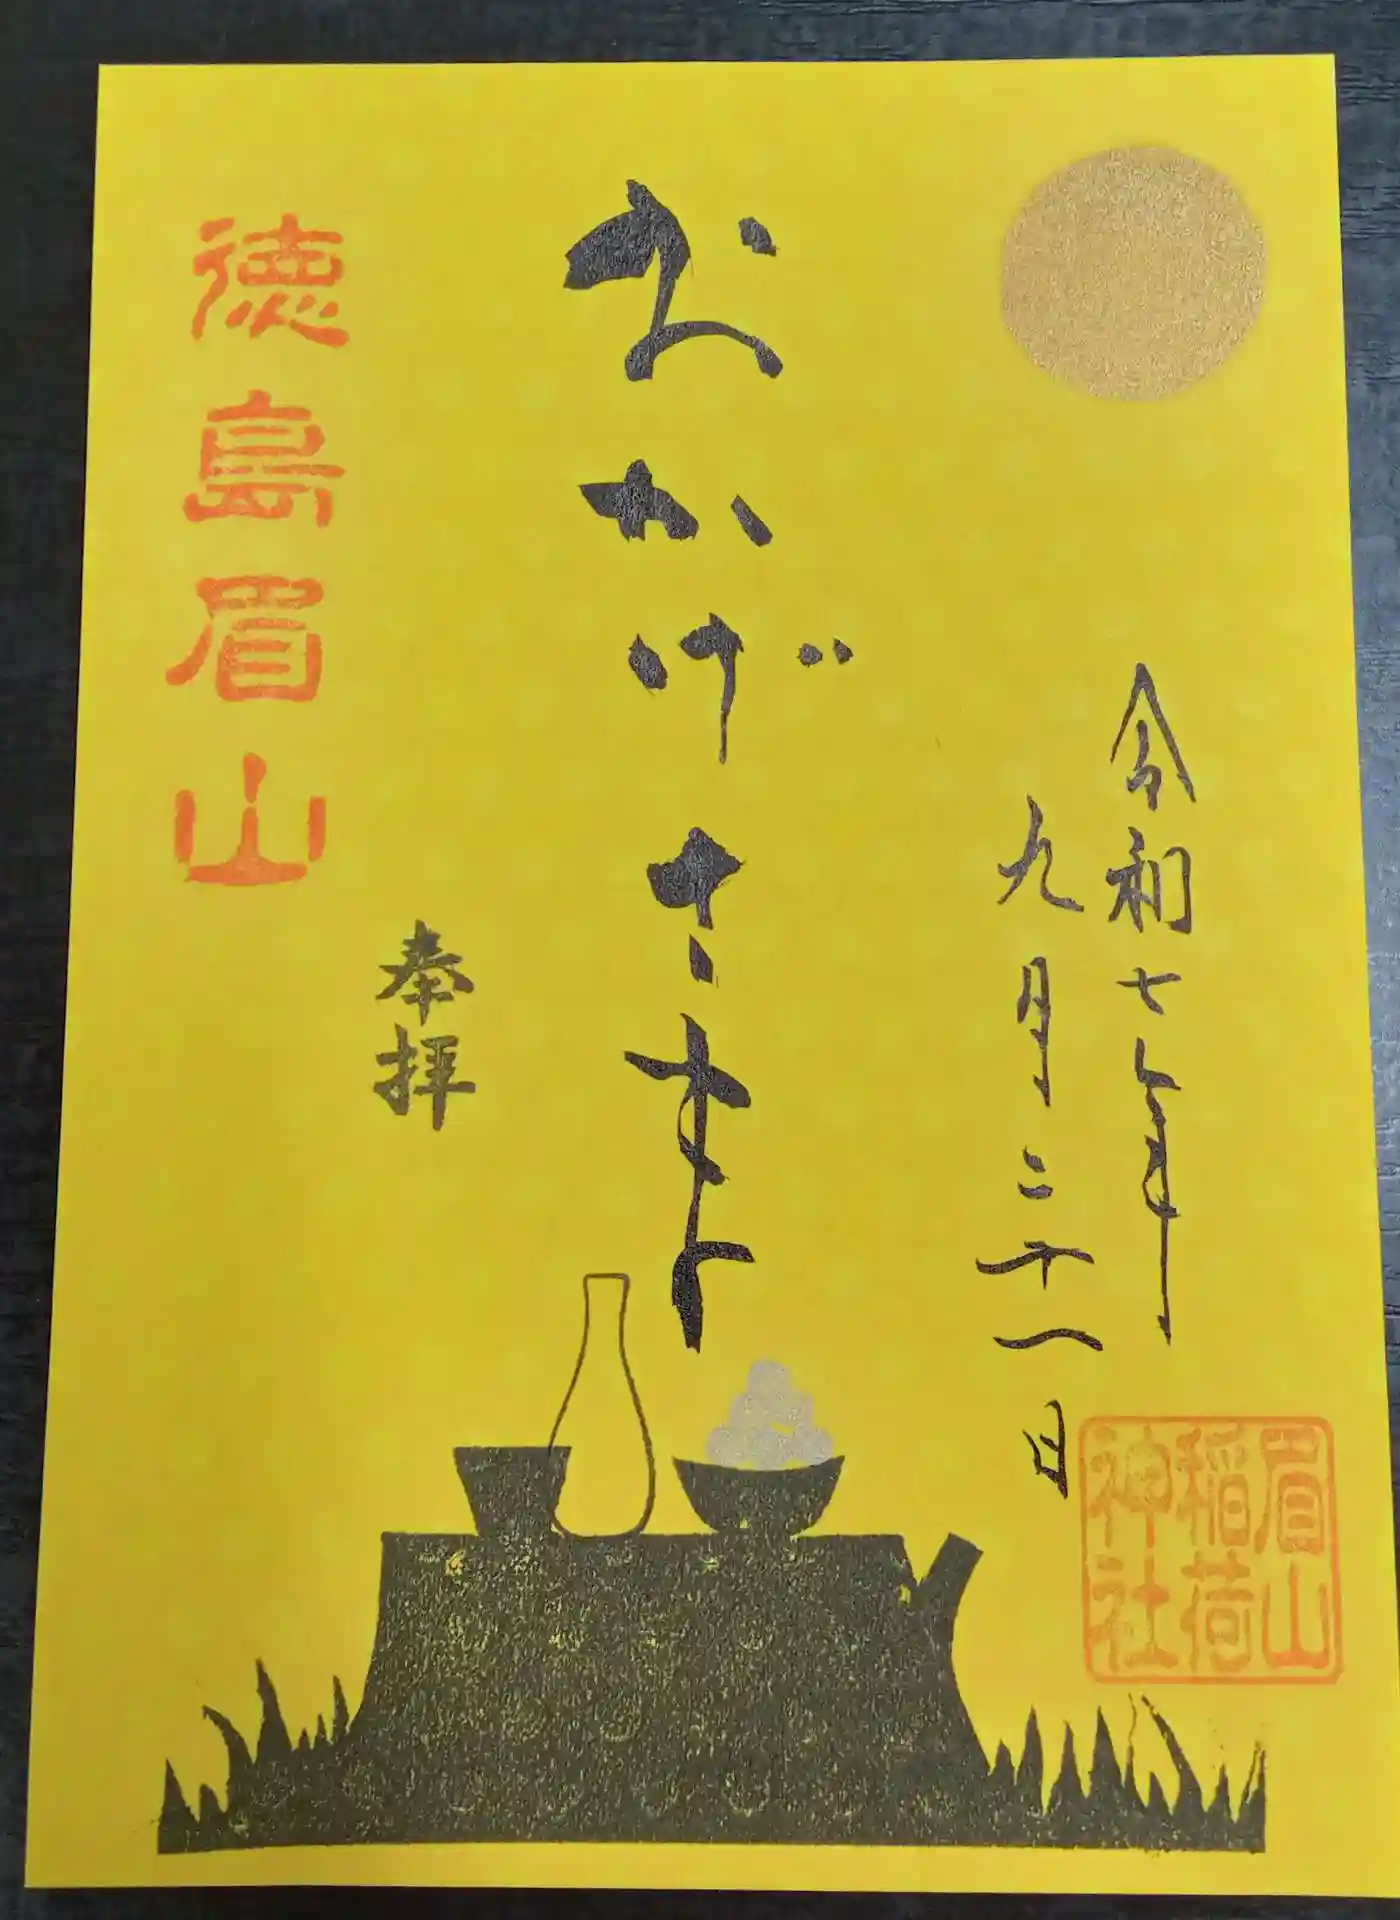 令和七年
九月二十一日
おかげさま
奉拝
徳島眉山
眉山
稲荷
神社